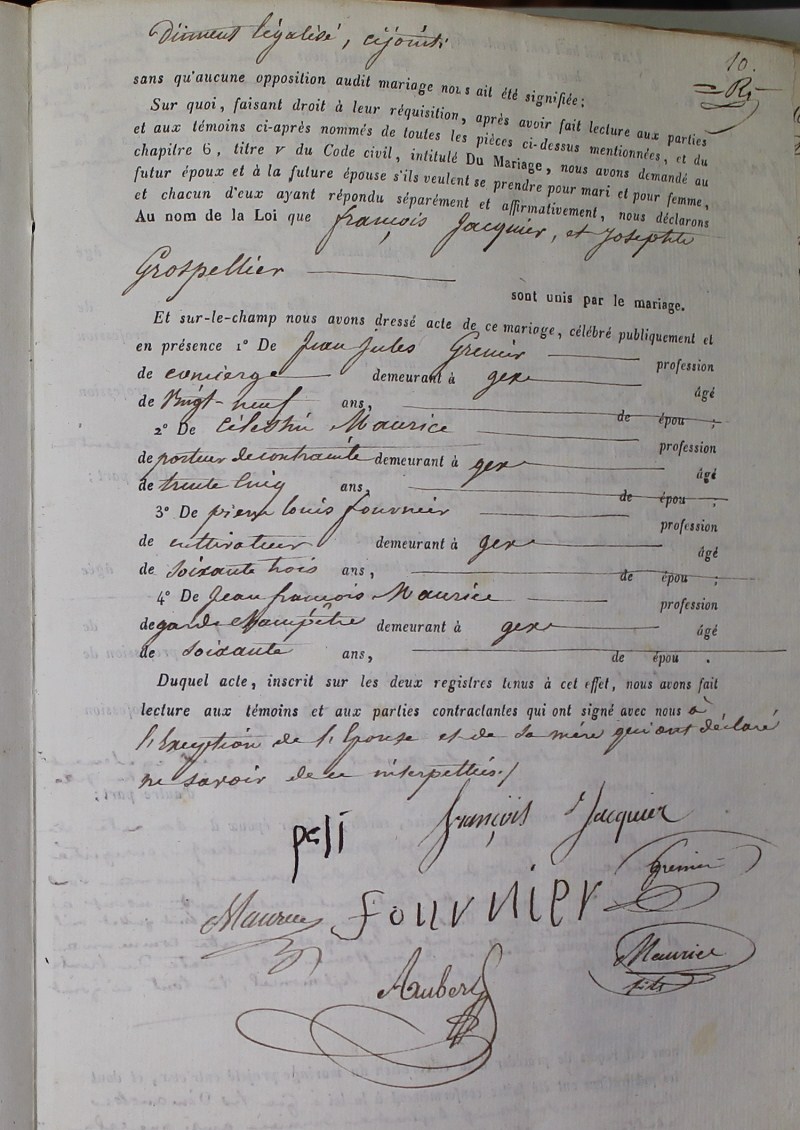 Dûment légalisé, cijoint;
10.
sans qu'aucune opposition audit mariage nous ait été signifiée;
Sur quoi, faisant droit à leur réquisition, après avoir fait lecture aux parties
et aux témoins ci-après nommés de toutes les pièces ci-dessus mentionnées, et du
chapitre 6, titre V du Code civil, intitulé Du Mariage, nous avons demandé au
futur époux et à la future épouse s'ils veulent se prendre pour mari et pour femme,
et chacun d'eux ayant répondu séparément et affirmativement, nous déclarons
Au nom de la Loi que françois Jacquier, et Josephte
Grospellier
sont unis par le mariage.
Et sur-le-champ nous avons dressé acte de ce mariage, célébré publiquement et
en présence 1° De Jean Jules Grenier profession
de concierge demeurant à gex âgé
de Vingt-neuf ans, de épou ;
2° De célestin Maurice profession
de porteur de contrainte demeurant à gex âgé
de trente cinq ans, de épou ;
3° De pierre louis fournier profession
de cultivateur demeurant à gex âgé
de soixante trois ans, de épou ;
4° De Jean françois Maurice profession
de garde champêtre demeurant à gex âgé
de soixante ans, de épou .
Duquel acte, inscrit sur les deux registres tenus à cet effet, nous avons fait
lecture aux témoins et aux parties contractantes qui ont signé avec nous à
l'Exception de l'Epouse et de sa mère qui ont déclaré
ne savoir de ce interpellées./
françois Jacquier
pelj
Grenier
Maurice fournier
Maurice
fils
Aubert